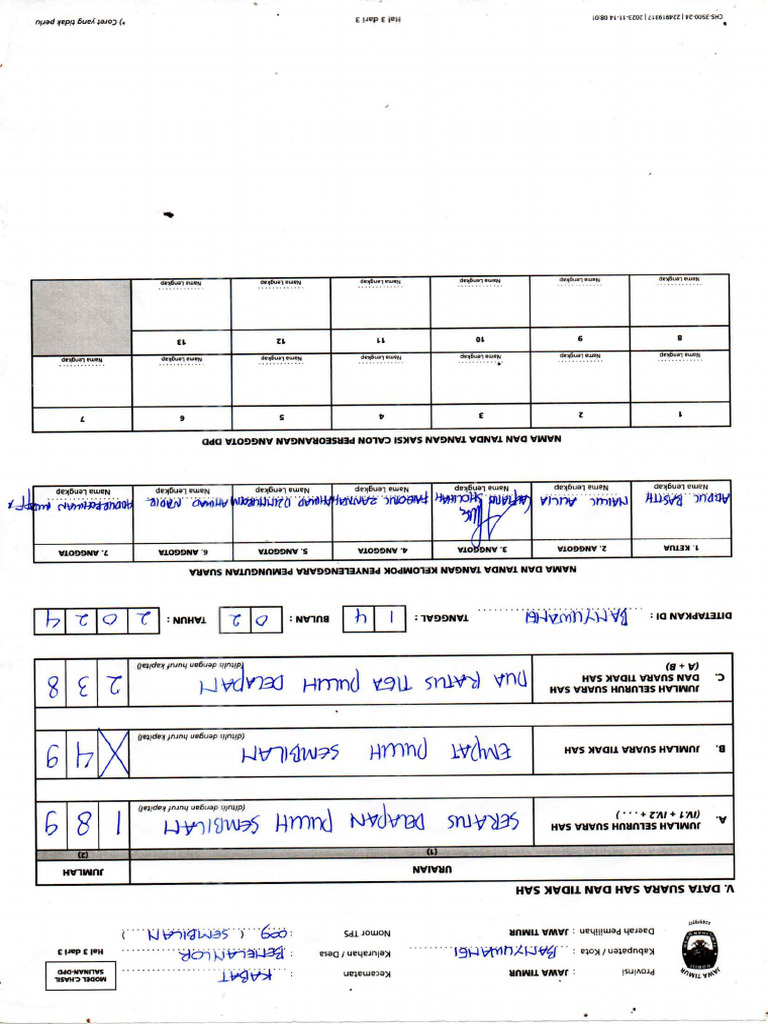 MODEL C.HASIL SALINAN-DPD
Hal 3 dari 3
JAWA TIMUR
Provinsi : JAWA TIMUR
Kabupaten / Kota : BANYUWANGI
Daerah Pemilihan : JAWA TIMUR
Kecamatan : KABAT
Kelurahan / Desa : BENELANLOR
Nomor TPS : 009 ( SEMBILAN )
V. DATA SUARA SAH DAN TIDAK SAH
URAIAN JUMLAH
(1) (2)
A. JUMLAH SELURUH SUARA SAH (IV.1 + IV.2 + . . . . ) SERATUS DELAPAN PULUH SEMBILAN 1 8 9
(ditulis dengan huruf kapital)
B. JUMLAH SUARA TIDAK SAH EMPAT PULUH SEMBILAN X 4 9
(ditulis dengan huruf kapital)
C. JUMLAH SELURUH SUARA SAH DAN SUARA TIDAK SAH (A + B) DUA RATUS TIGA PULUH DELAPAN 2 3 8
(ditulis dengan huruf kapital)
DITETAPKAN DI : BANYUWANGI TANGGAL : 1 4 BULAN : 0 2 TAHUN : 2 0 2 4
NAMA DAN TANDA TANGAN KELOMPOK PENYELENGGARA PEMUNGUTAN SUARA
1. KETUA 2. ANGGOTA 3. ANGGOTA 4. ANGGOTA 5. ANGGOTA 6. ANGGOTA 7. ANGGOTA
ABDUL BASITH NAILUL ALILIA SHOLIKAH AHMAD AHMAD NADIR ABDURROHMAN
Nama Lengkap Nama Lengkap Nama Lengkap Nama Lengkap Nama Lengkap Nama Lengkap Nama Lengkap
NAMA DAN TANDA TANGAN SAKSI CALON PERSEORANGAN ANGGOTA DPD
1 2 3 4 5 6 7
Nama Lengkap Nama Lengkap Nama Lengkap Nama Lengkap Nama Lengkap Nama Lengkap Nama Lengkap
8 9 10 11 12 13
Nama Lengkap Nama Lengkap Nama Lengkap Nama Lengkap Nama Lengkap Nama Lengkap
CHS-3500-24 | 22491931​7 | 2023-11-14 08:01 Hal 3 dari 3 *) Coret yang tidak perlu